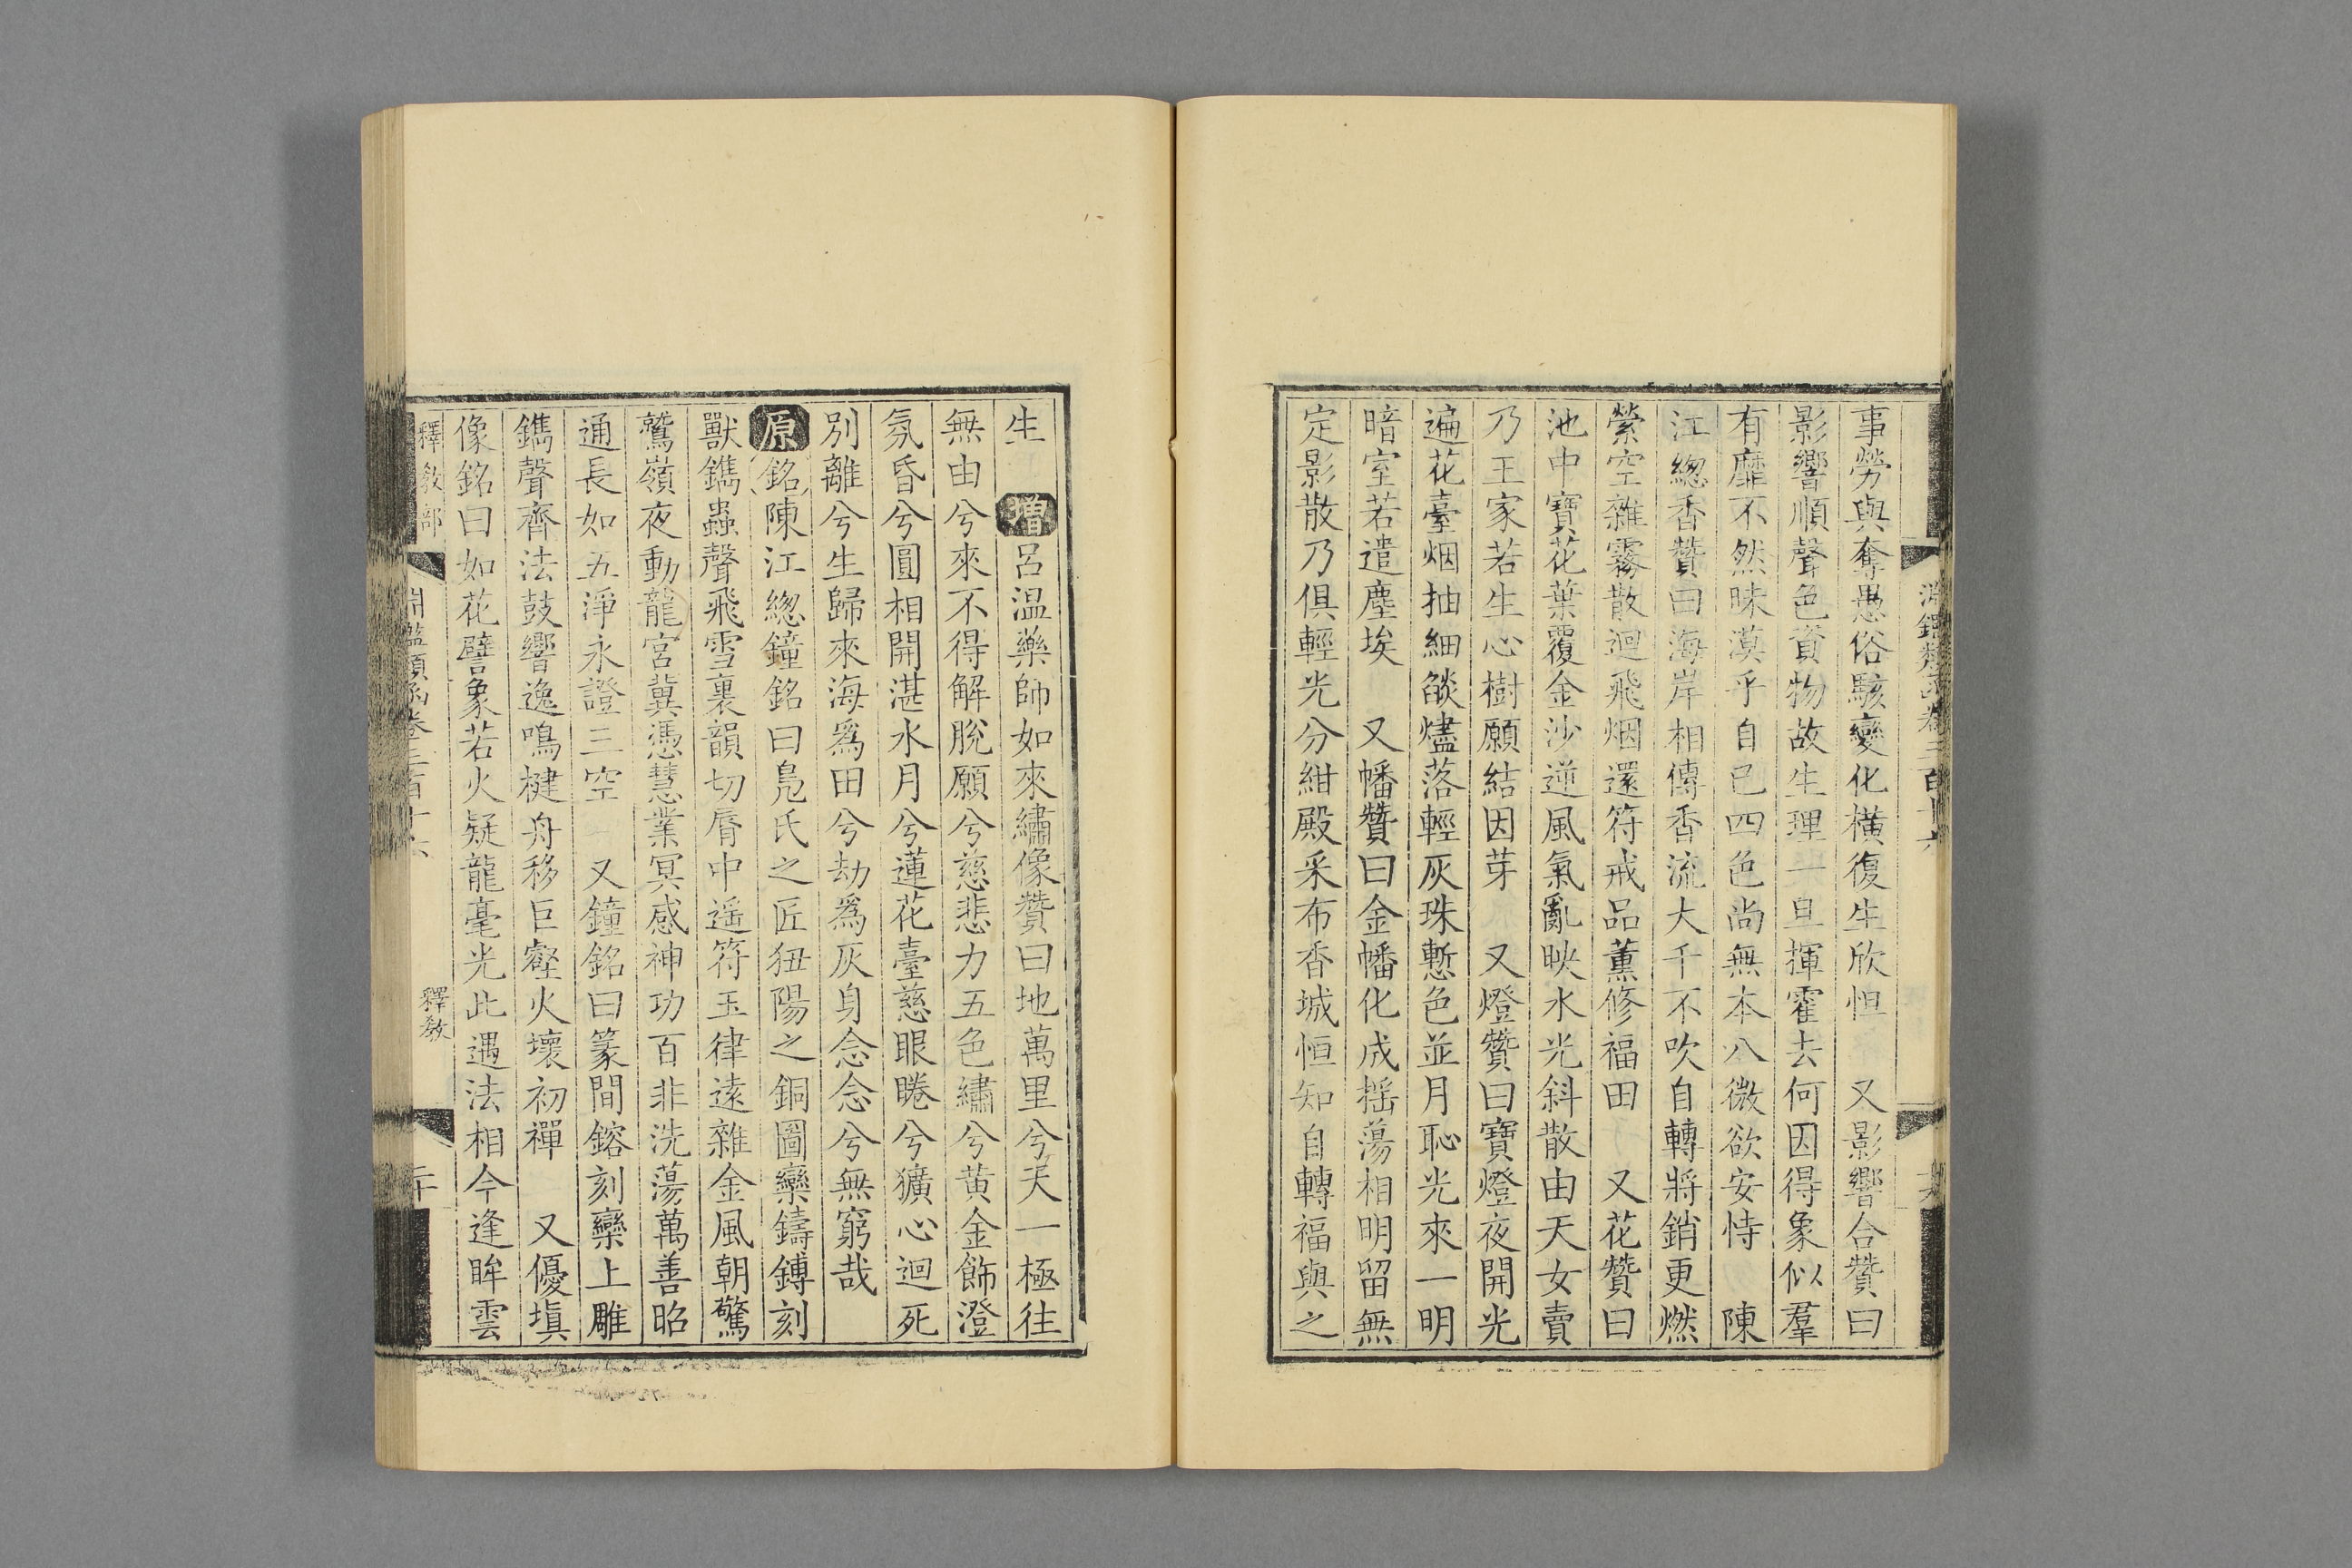 事勞與奪愚俗駭變化橫復生欣怛 又影響合贊曰
影響順聲色資物故生理一旦揮霍去何因得象似羣
有靡不然昧漠乎自已四色尚無本八微欲安恃 陳
江總香贊曰海岸相傳香流大千不吹自轉將銷更燃
縈空雜霧散迴飛烟還符戒品薰修福田 又花贊曰
池中寶花葉覆金沙逆風氣亂映水光斜散由天女賣
乃王家若生心樹願結因芽 又燈贊曰寶燈夜開光
遍花臺烟抽細燄燼落輕灰珠慙色並月恥光來一明
暗室若遣塵埃 又幡贊曰金幡化成搖蕩相明留無
定影散乃俱輕光分紺殿采布香城恒知自轉福與之
生 增呂溫藥師如來繡像贊曰地萬里兮天一極往
無由兮來不得解脫願兮慈悲力五色繡兮黃金飾澄
氛昏兮圓相開湛水月兮蓮花臺慈眼睠兮獷心迴死
別離兮生歸來海爲田兮劫爲灰身念念兮無窮哉
原銘陳江總鐘銘曰鳧氏之匠狃陽之銅圖欒鑄鎛刻
獸鐫蟲聲飛雪裏韻切脣中遥符玉律遠雜金風朝驚
鷲嶺夜動龍宮冀憑慧業冥感神功百非洗蕩萬善昭
通長如五淨永證三空 又鐘銘曰篆間鎔刻欒上雕
鐫聲齊法鼓響逸鳴楗舟移巨壑火壞初禪 又優塡
像銘曰如花譬象若火疑龍毫光此遇法相今逢眸雲
釋教部 淵鑑類函卷三百十六 釋教 二十